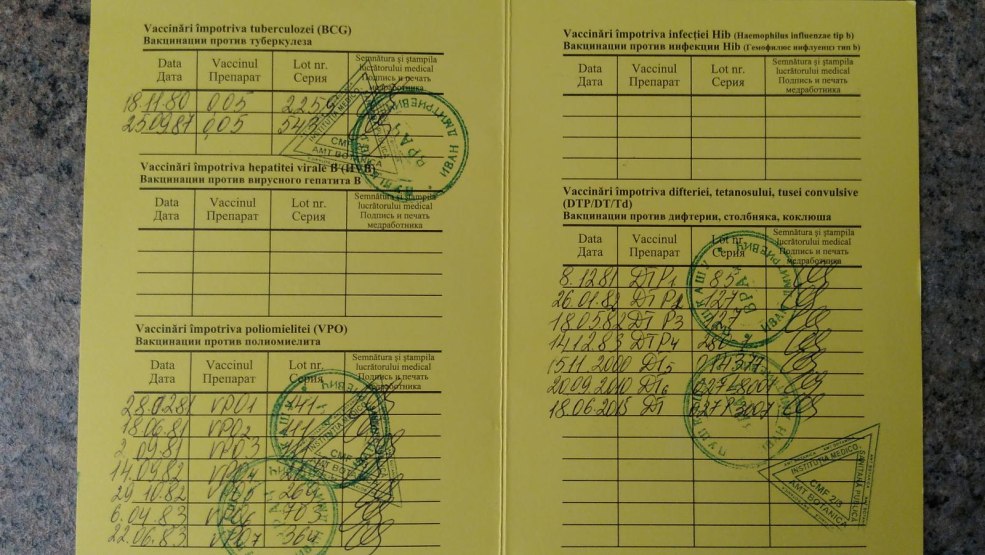 Vaccinări împotriva tuberculozei (BCG)
Вакцинации против туберкулеза
Data Vaccinul Lot nr. Semnătura și ștampila lucrătorului medical
Дата Препарат Серия Подпись и печать медработника
18.11.80 0,05 2259
25.09.87 0,05 543
Vaccinări împotriva hepatitei virale B (HVB)
Вакцинации против вирусного гепатита В
Data Vaccinul Lot nr. Semnătura și ștampila lucrătorului medical
Дата Препарат Серия Подпись и печать медработника
Vaccinări împotriva poliomielitei (VPO)
Вакцинации против полиомиелита
Data Vaccinul Lot nr. Semnătura și ștampila lucrătorului medical
Дата Препарат Серия Подпись и печать медработника
VPO1
18.06.81 VPO2
2.09.81 VPO3
14.09.82
29.10.82 269
6.04.83 703
22.06.83 VPO7 364
ИВАН ДМИТРИЕВИЧ
ВРАЧ
INSTITUTIA MEDICO
CMF
AMT BOTANICA
Vaccinări împotriva infecției Hib (Haemophilus influenzae tip b)
Вакцинации против инфекции Hib (Гемофилюс инфлуенц тип b)
Data Vaccinul Lot nr. Semnătura și ștampila lucrătorului medical
Дата Препарат Серия Подпись и печать медработника
Vaccinări împotriva difteriei, tetanosului, tusei convulsive
(DTP/DT/Td)
Вакцинации против дифтерии, столбняка, коклюша
Data Vaccinul Lot nr. Semnătura și ștampila lucrătorului medical
Дата Препарат Серия Подпись и печать медработника
8.12.81 DTP1 85
26.01.82 DTP2 127
18.05.82 DTP3 127
14.12.83 DTP4
15.11.2000 DT5
20.09.2010 DT6
18.06.2015 DT
INSTITUTIA MEDICO-
SANITARA PUBLICA
CMF 2/5
AMT BOTANICA